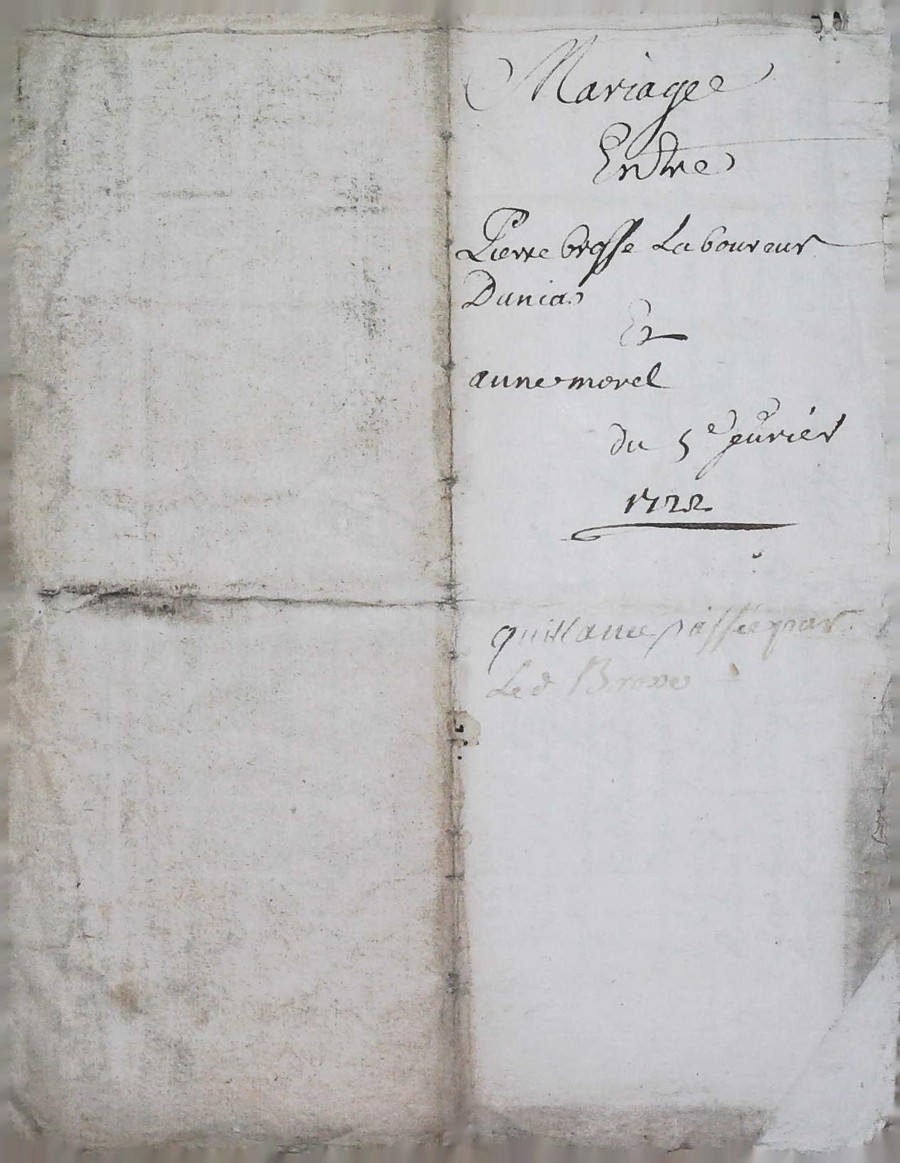 Mariage
Entre
Pierre brosse Laboureur
Dunias
Et
anne morel
du 5e feurier
1722
quittance passée par
Led